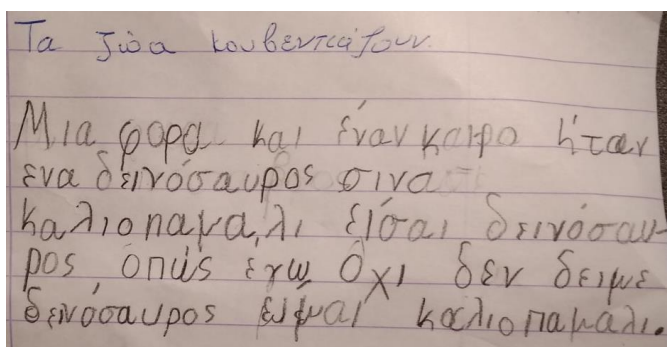 Τα ζώα κουβεντιάζουν.
Μια φορα και έναν καιρο ήταν
ενα δεινόσαυρος σινα
καλιοπαμα,λι είσαι δεινόσαυ-
ρος, όπως εγω Όχι δεν δειμε
δεινόσαυρος είμαι καλιοπαμαλι.